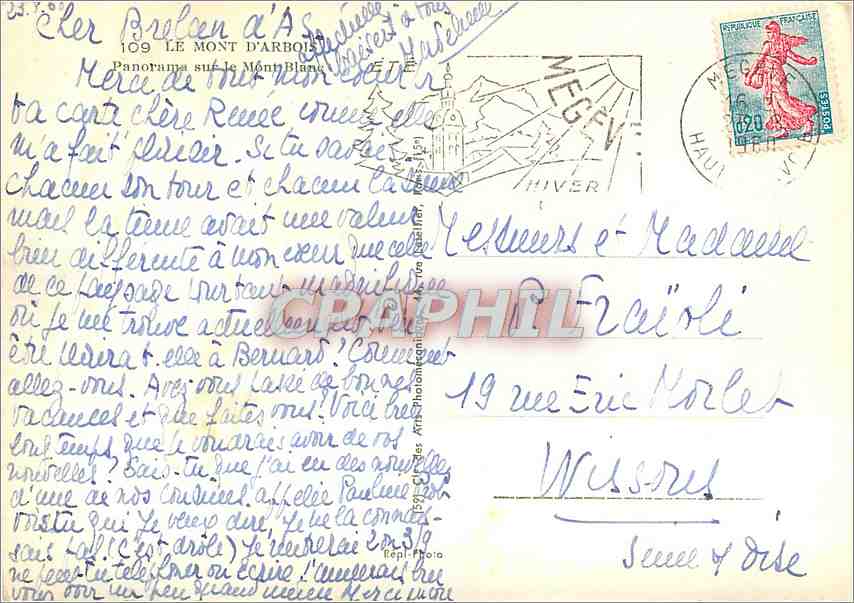 Cher Brelan d'As
109 LE MONT D'ARBOIS
Panorama sur le Mont Blanc
Merci de tout mon cœur
ta carte chère Renée comme elle
m'a fait plaisir. Si tu savais
chacun son tour et chacun la sienne
mais la tienne avait une valeur
bien différente à mon cœur que celle
de ce paysage pourtant magnifique
où je me trouve actuellement
être à Bernard! Comment
allez-vous. Avez-vous passé de bonnes
vacances et que faites vous! Voici bien
longtemps que je voudrais avoir de vos
nouvelles? Sais-tu que j'ai eu des nouvelles
d'une de nos cousines appelée Pauline
vois tu qui je veux dire, je ne la connais-
sais pas! (C'est drôle) Je rentrerai 2 ou 3/9
ne peux-tu téléphoner ou écrire! J'aimerais bien
vous voir un peu quand même Merci encore
ETE
MEGÈV
HIVER
RÉPUBLIQUE FRANÇAISE
0,20
POSTES
MEGEVE
1960
HAU
Messieurs et Madame
Fraïoli
19 rue Eric Morlet
Wissous
Seine & Oise
CPRAPHIL
Cie des Arts Photomécaniques
Repl-Photo